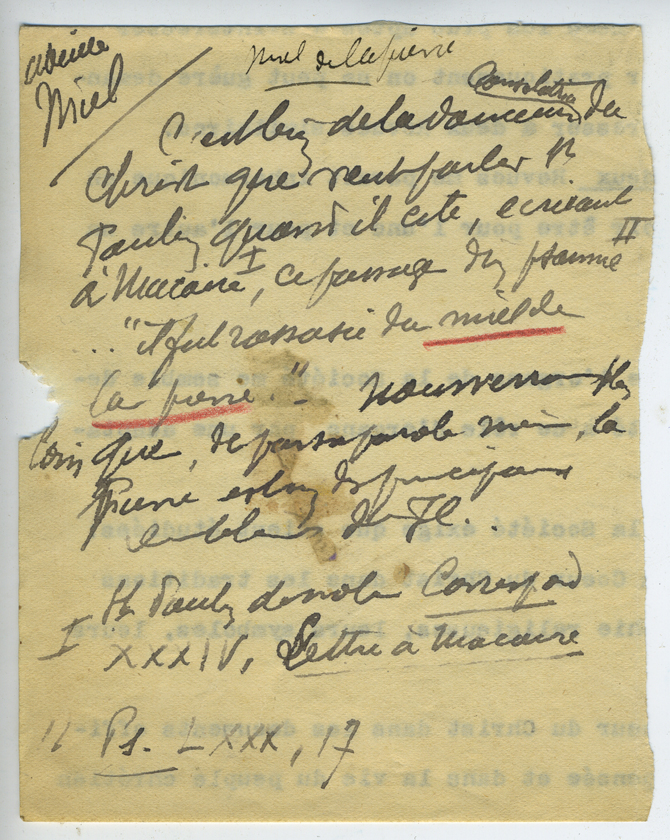 abeille
Miel
miel de la pierre
Consolatrice
C'est bien de la douceur du
Christ que veut parler St
Paulin quand il cite, écrivant
à Macaire I, ce passage du psaume II
..."il fut rassasié du miel de
la pierre." Nous verrons plus
loin que, de par sa parole même, la
Pierre est un des principaux
emblèmes de J.C.
St Paulin de Nole Correspond
I XXXIV, Lettre à Macaire
II Ps. LXXX, 17